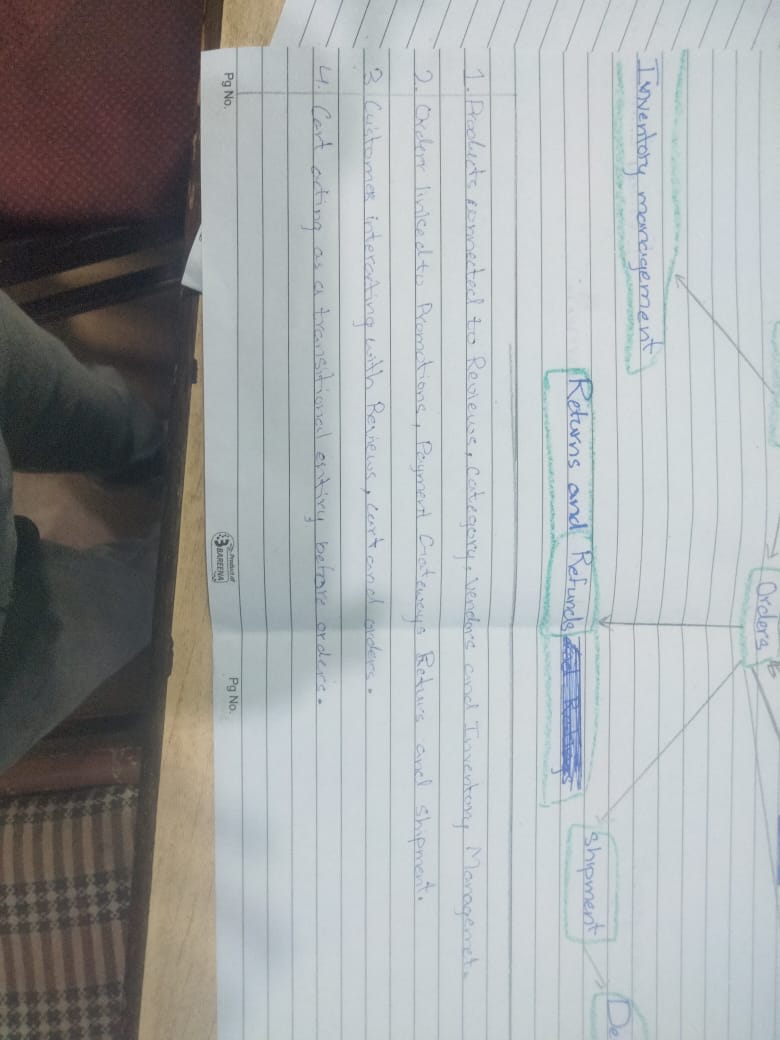 Orders
Inventory management
Returns and Refunds
Shipment
De
1. Products connected to Reviews, Category, Vendors and Inventory Managemet.
2. Orders linked to Promotions, Payment Gateways Returs and Shipment.
3 Customer interacting with Reviews, cart and orders.
4. Cart acting as a transitional entiry before orders.
Pg No.
Product of
BAREENA
Pg No.